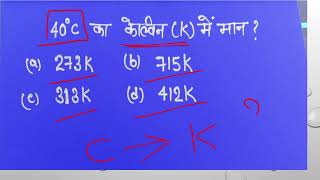 40°C का केल्विन (K) में मान ?
(a) 273K (b) 715K
(c) 313K (d) 412K
C → K ?